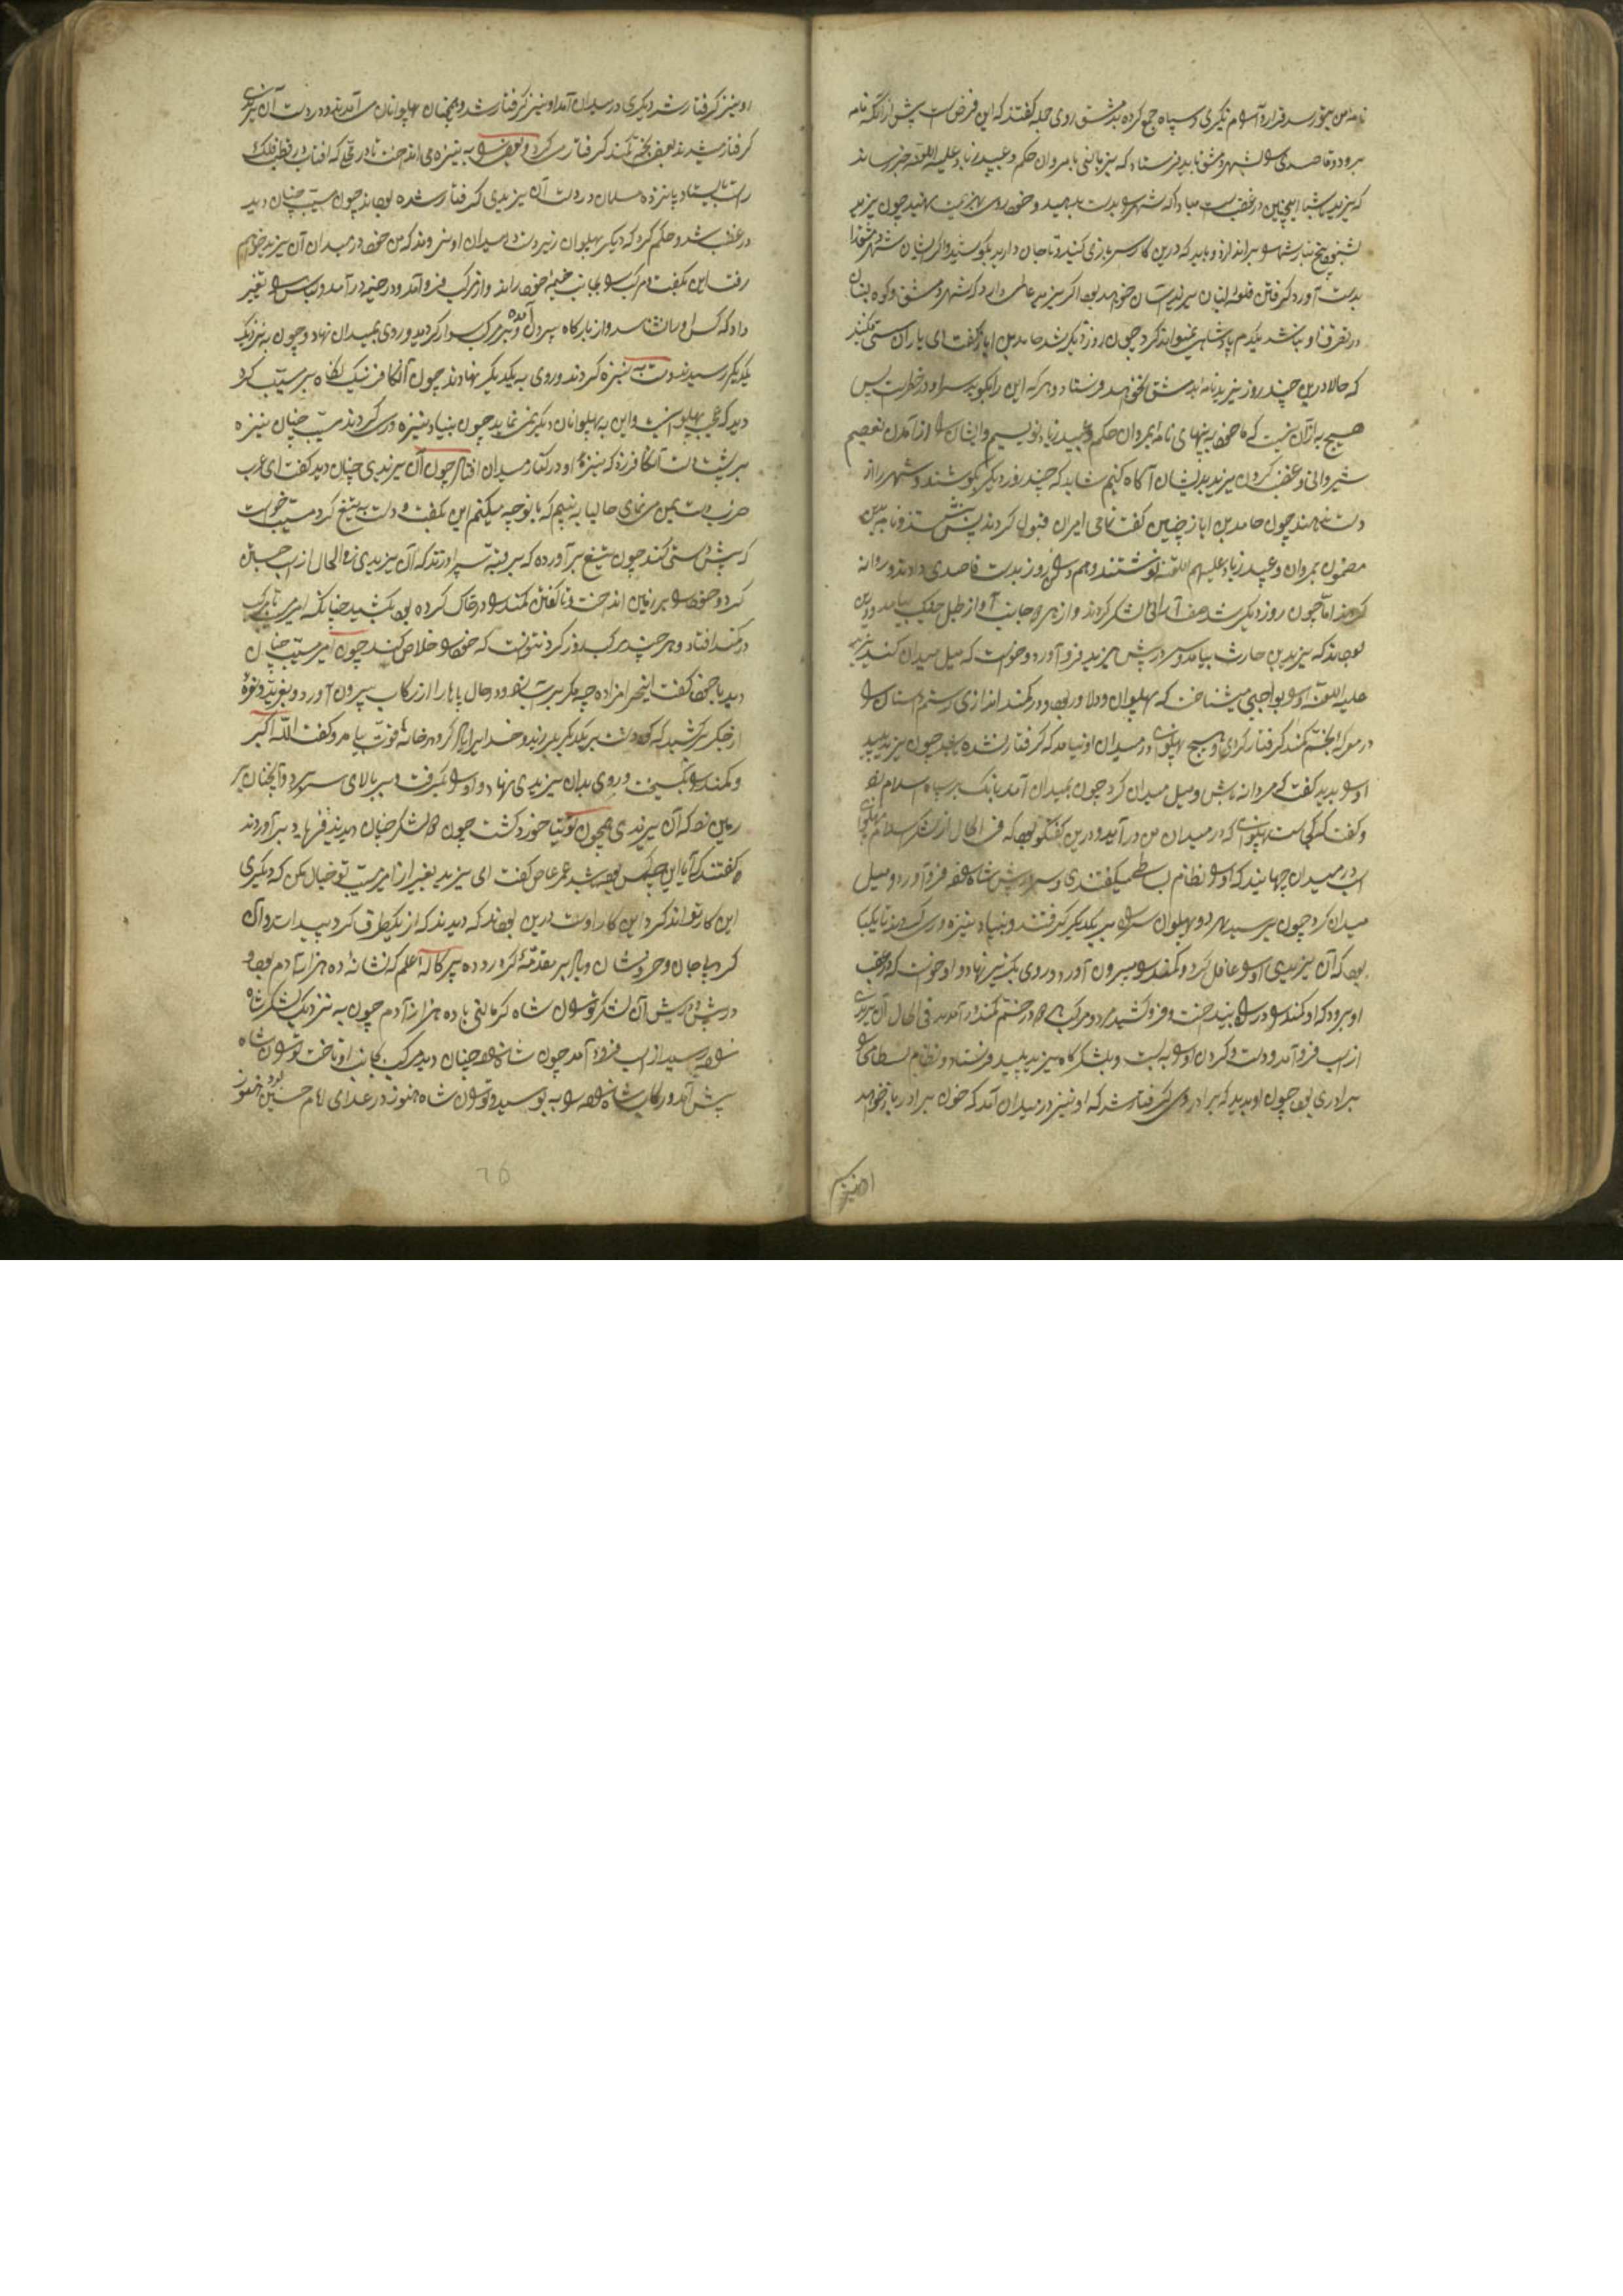 نامه من بیغور سد قرار و آرام نگیری و سپاه جمع کرده بدمشق روی جمله گفتند که این فرض است پیش از آنکه نامه
برود و قاصدی بشهر دمشق باید فرستاد که نیز مروان حکم و عبید زیاد علیه اللعنه خبر رساند
که یزید شما اینچنین در غضب است مبادا که شهر بدست بدهید و خود روی بهزیمت نهید چون یزید
بشنود بیخ تبار شما براندازد و باید که درین کار سر بازی کنید و تا جان دارید بکوشید و اگر ایشان شهر دمشق را
بدست آورد گرفتن قلعه لبنان خواهد بود اگر یزید عاملی دارد که شهر دمشق و کوه لبنان
در تصرف او نباشد یکدم پادشاهی نمیتواند کرد چون روز دیگر شد حامد بن ایاز گفت ای یاران سستی مکنید
که حالا درین چند روز یزید نامه بدمشق خواهد فرستاد و هر که این را بگوید سر او در خطرست پس
هیچ به از آن نیست که ما خود به پنهانی نامه بمروان حکم و عبید زیاد نویسیم و ایشان را از آمدن
شیروانی و غضب کردن یزید بدیشان آگاه کنیم شاید که چند روز دیگر بکوشند و شهر را از
دست ندهند چون حامد بن ایاز چنین گفت تمامی امیران قبول کردند پس بنشستند و نامه بدین
مضمون بمروان و عبید زیاد علیهم اللعنه نوشتند و هم در آن روز بدست قاصدی دادند و روانه
کردند اما چون روز دیگر شد صف آرائی لشکر کردند و از هر دو جانب آواز طبل جنگ بیامد درین
بودند که یزید بن حارث بیامد و سر در پیش یزید فرو آورد و خواست که میل میدان کند یزید
علیه اللعنه او را بواجبی میشناخت که پهلوان و دلاور بود و در کمند اندازی رستم دستان را
در معرکه بخم کمند گرفتار کردی و هیچ پهلوانی در میدان او نیامد که گرفتار نشده باشد چون یزید پلید
او را بدید گفت که مردانه باش و میل میدان کرد چون بمیدان آمد بانگ بر سپاه اسلام زد
و گفت که کجاست پهلوانی که در میدان من در آید و درین گفتگو بود که فی الحال از لشکر اسلام پهلوانی
اسب در میدان جهانید که او را نظام بسطامی گفتندی و سر در پیش شاه فرو آورد و میل
میدان کرد چون برسید هر دو پهلوان سر راه بر یکدیگر گرفتند و بنیاد نیزه ورس کردند تا یکبار
بود که آن یزیدی او را غافل کرد و کمند را بیرون آورد و روی بگریز نهاد و او خواست که در عقب
او برود که او کمند را در راه بینداخت و فرو کشید مرد و مرکب هر دو در خم کمند در آمدند فی الحال آن یزیدی
از اسب فرو آمد و دست و گردن او را به بست و بلشکرگاه یزید پلید فرستاد و نظام بسطامی را
برادری بود چون او بدید که برادر وی گرفتار شد که او نیز در میدان آمد که خون برادر باز خواهد
او نیز
او نیز گرفتار شد دیگری در میدان آمد او نیز گرفتار شد و همچنان پهلوانان می آمدند و در دست آن یزیدی
گرفتار میشدند بعضی بخم کمند گرفتار می کرد و بعضی را به نیزه می انداخت تا در وقتی که آفتاب در قطب فلک
راست بایستاد پانزده مسلمان در دست آن یزیدی گرفتار شده بودند چون مسیب چنان دید
در غضب شد و حکم کرد که دیگر پهلوانان زیر دست در میدان او نروند که من خود در میدان آن یزید خواهم
رفت این بگفت و مرکب را بجانب خیمه خود راند و از مرکب فرو آمد و در خیمه در آمد و لباس را تغییر
داد که کس او را نشناسد و از بارگاه بیرون آمده و بر مرکب سوار گردید و روی بمیدان نهاد و چون به نزدیک
یکدیگر رسیدند دست به نیزه کردند و روی به یکدیگر نهادند چون آن کافر نیک نگاه بر مسیب کرد
دید که عجب پهلوانیست و این به پهلوانان دیگر نمی نماید چون بنیاد نیزه ورس کردند مسیب چنان نیزه
بر پشت دست آن کافر زد که نیزه او در کنار میدان افتاد چون آن یزیدی چنان دید گفت ای عرب
ضرب دست بمن می نمای حالیا به بینیم که با تو چه میکنم این بگفت و دست به تیغ کرد مسیب خواست
که پیش دستی کند چون تیغ بر آورده که بر قبه سپر او زند که آن یزیدی فی الحال از اسب جستن
کرد و خود را بر زمین انداخت و تا گفتن کمند را در خاک کرده بود بکشید چنانکه امیر با مرکب
در کمند افتاد و هر چند مرکب زور کرد نتوانست که خود را خلاص کند چون امیر مسیب چنان
دید با خود گفت این حرامزاده چه مکر بود در حال پاها را از رکاب بیرون آورد و بغرید و نعره
از جگر برکشید که کوه و دشت بر یکدیگر بلرزید و خدا را یاد کرد و گفت الله اکبر
و کمند را بگسیخت و روی بدان یزیدی نهاد و او را بگرفت و ببالای سر برد و آنچنان بر
زمین زد که آن یزیدی همچون توتیا خورد گشت چون هر دو لشکر چنان دیدند فریاد بر آوردند
و گفتند که آیا این چه کس بوده باشد عمر عاص گفت ای یزید بغیر از امیر مسیب تو خیال مکن که دیگری
این کار تواند کرد این کار اوست درین بودند که دیدند که از یک طرف گرد پیدا شد و آن
گرد پیچان و خروشان و باد بر مقدمه گرد زد ده پرکاله علم که نشانه ده هزار آدم بود و
در پیش آن لشکر توسون شاه کرمانی با ده هزار آدم چون به نزدیک لشکر شاه
رسید از اسب فرود آمد چون شاه چنان دید مرکب بجانب او تاخت توسون شاه
پیش آمد و رکاب شاه را به بوسید و توسون شاه هنوز در عزای امام حسین بود و هنوز